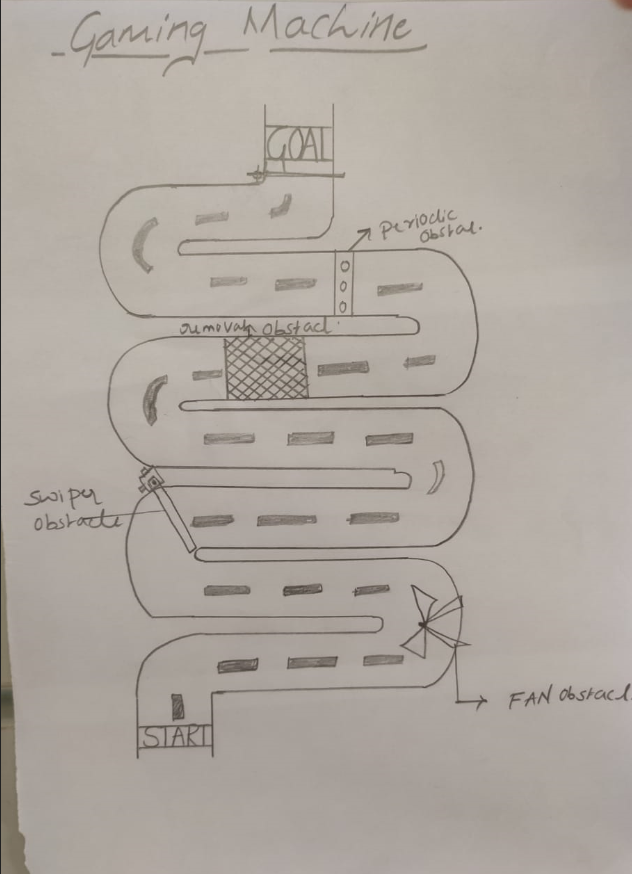 Gaming Machine
GOAL
Periodic
obstal.
removab obstacl.
Swiper
obstacle
FAN obstacl.
START